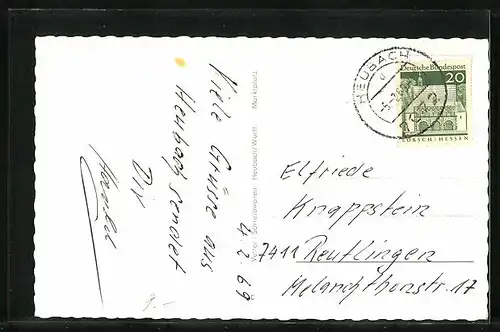 4. 2. 69
Viele Grüsse aus
Heubach sendet
Dir
Verlag Schreibwaren Heubach/Württ. Marktplatz
HEUBACH
Deutsche Bundespost
20
LORSCH/HESSEN
Elfriede
Knappstein
7411 Reutlingen
Melanchthonstr. 17
9.-